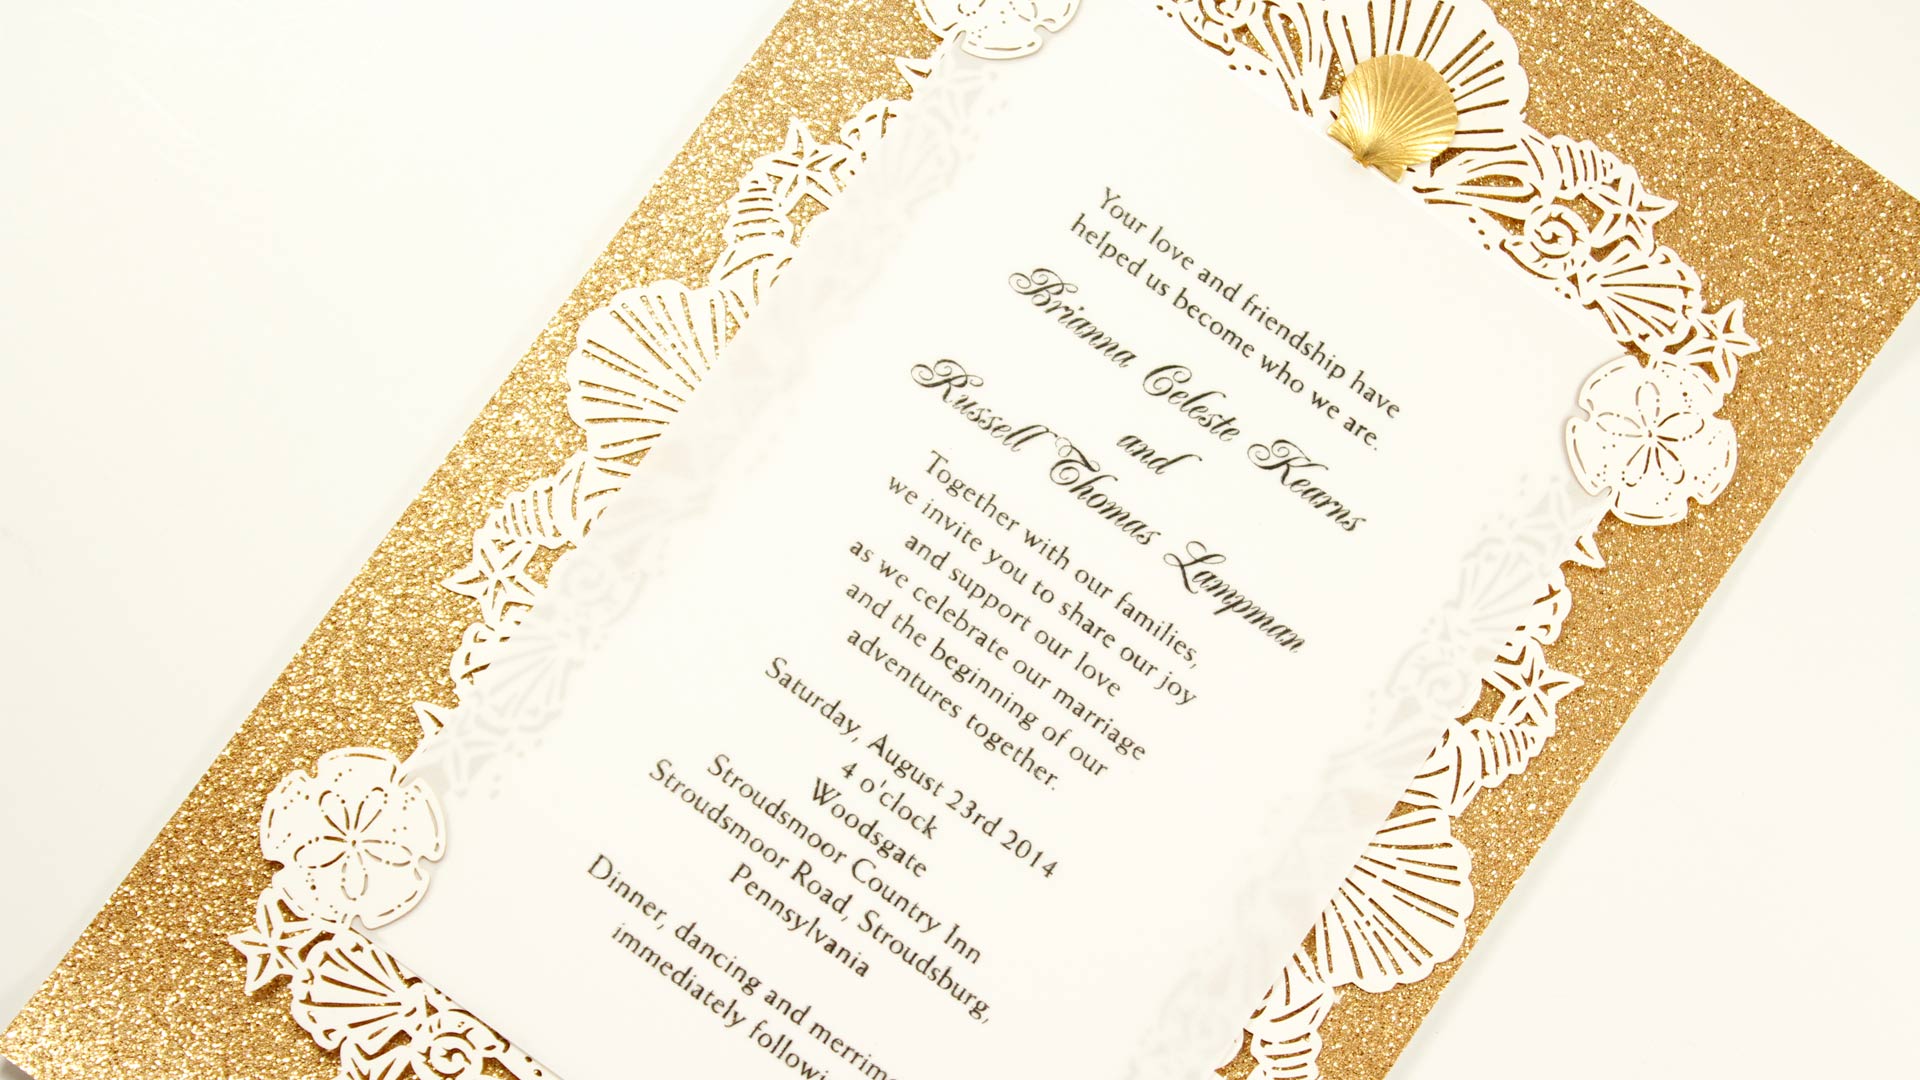 Your love and friendship have
helped us become who we are.
Brianna Celeste Kearns
and
Russell Thomas Lampman
Together with our families,
we invite you to share our joy
and support our love
as we celebrate our marriage
and the beginning of our
adventures together.
Saturday, August 23rd 2014
4 o'clock
Woodsgate
Stroudsmoor Country Inn
Stroudsmoor Road, Stroudsburg,
Pennsylvania
Dinner, dancing and
immediately